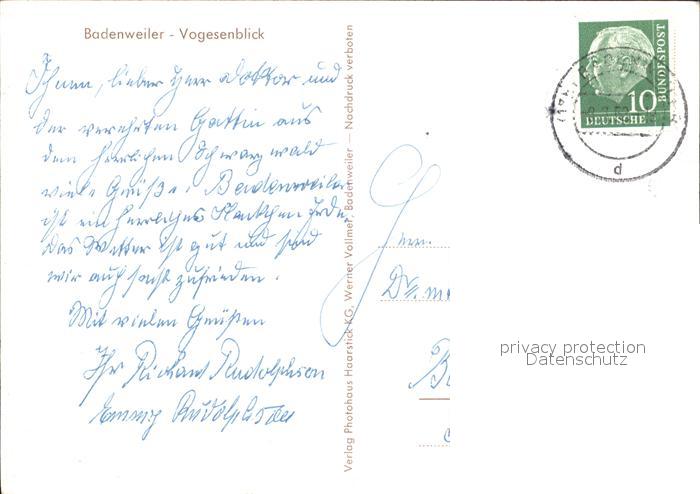 Badenweiler - Vogesenblick
Ihnen, lieber Herr Doktor und
der verehrten Gattin aus
dem herrlichen Schwarzwald
viele Grüße. Badenweiler
ist ein herrliches Fleckchen Erde.
Das Wetter ist gut und sind
wir auch sonst zufrieden.
Mit vielen Grüßen
Ihr Richard Rudolphsen
Emmy Rudolphsen
Verlag Photohaus Haarstick KG, Werner Vollmer, Badenweiler — Nachdruck verboten
10
DEUTSCHE
BUNDESPOST
d
Herrn
Dr. m
privacy protection
Datenschutz